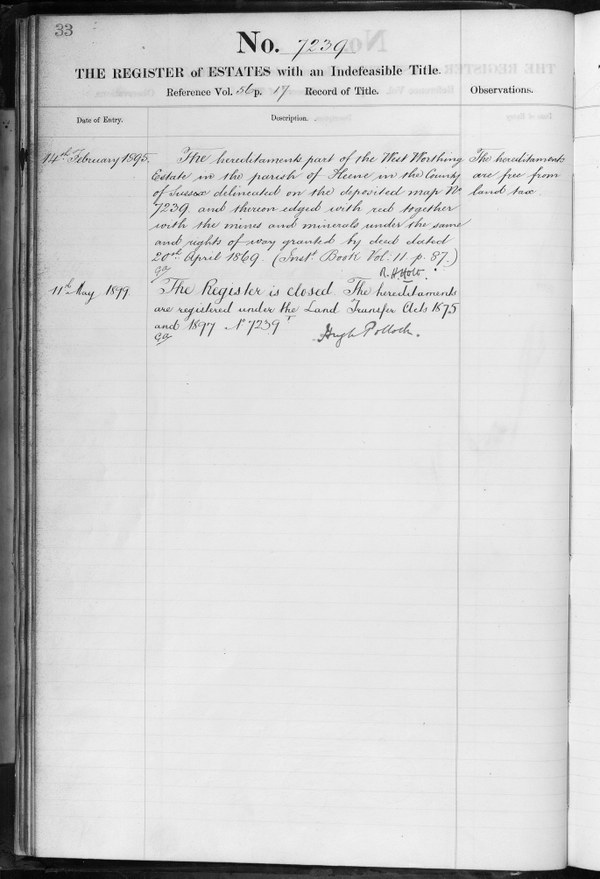 33
No. 7239
THE REGISTER of ESTATES with an Indefeasible Title.
Reference Vol. 56 p. 17 Record of Title.
Observations.
Date of Entry.
Description.
14th February 1895.
The hereditaments part of the West Worthing
Estate in the parish of Heene in the County
of Sussex delineated on the deposited map No
7239 and thereon edged with red together
with the mines and minerals under the same
and rights of way granted by deed dated
20th April 1869. (Inst. Book Vol. 11 p. 87.)
R. H. Holt.
The hereditaments
are free from
land tax
11th May 1899
The Register is closed. The hereditaments
are registered under the Land Transfer Acts 1875
and 1897 No 7239
Hugh Pollock.